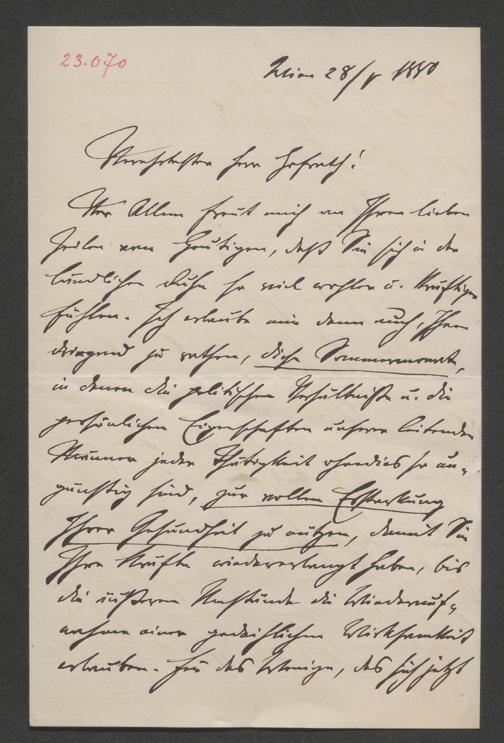 23.070
Wien 28/V 1880
Verehrtester Herr Hofrath!
Vor Allem freut mich an Ihren lieben
Zeilen vom Heutigen, daß Sie sich in der
ländlichen Ruhe so viel wohler u. kräftiger
fühlen. Ich erlaube mir denn auch, Ihnen
dringend zu rathen, diese Sommermonate,
in denen die politischen Verhältniße u. die
persönlichen Eigenschaften unserer leitenden
Männer jeder Thätigkeit ohnedies so un-
günstig sind, zur vollen Erstarkung
Ihrer Gesundheit zu nützen, damit Sie
Ihre Kräfte wiedererlangt haben, bis
die äußeren Umstände die Wiederauf-
nahme einer gedeihlichen Wirksamkeit
erlauben. Für das Wenige, das sich jetzt